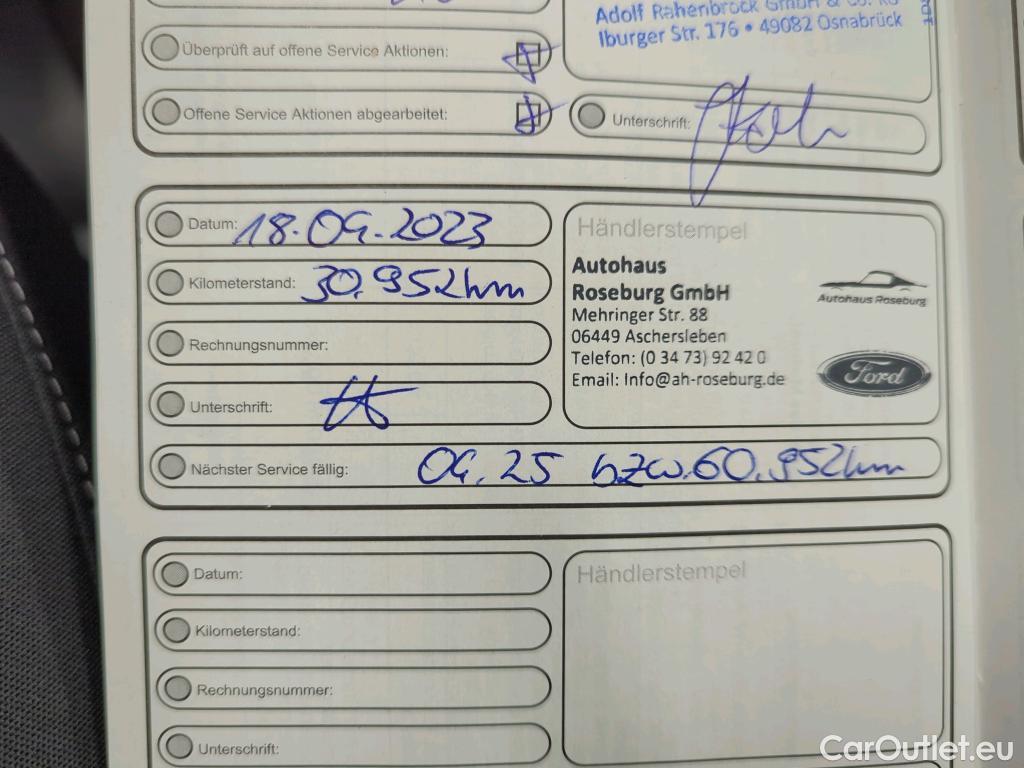 Adolf Rahenbrock GmbH & Co. KG
Iburger Str. 176 • 49082 Osnabrück
Überprüft auf offene Service Aktionen:
Offene Service Aktionen abgearbeitet:
Unterschrift:
Datum: 18.04.2023
Kilometerstand: 30.952km
Rechnungsnummer:
Unterschrift:
Händlerstempel
Autohaus
Roseburg GmbH
Mehringer Str. 88
06449 Aschersleben
Telefon: (0 34 73) 92 42 0
Email: Info@ah-roseburg.de
Autohaus Roseburg
Ford
Nächster Service fällig: 04.25 bzw. 60.952km
Datum:
Kilometerstand:
Rechnungsnummer:
Unterschrift:
Händlerstempel
CarOutlet.eu